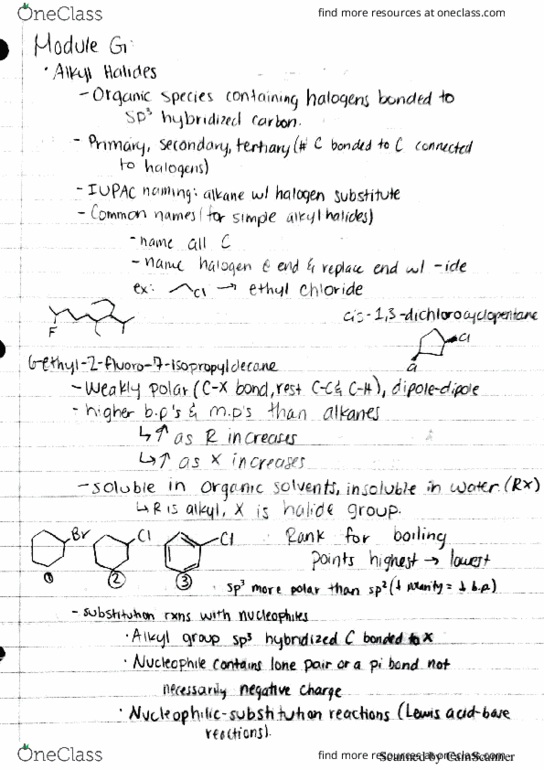 OneClass
find more resources at oneclass.com
Module G:
• Alkyl Halides
- Organic species containing halogens bonded to
sp³ hybridized carbon.
- Primary, secondary, tertiary (# C bonded to C connected
to halogens)
- IUPAC naming: alkane w/ halogen substitute
- Common names (for simple alkyl halides)
- name all C
- name halogen @ end & replace end w/ -ide
ex: Cl → ethyl chloride
cis-1,3-dichlorocyclopentane
F
Cl
Cl
6-ethyl-2-fluoro-7-isopropyldecane
- Weakly polar (C-X bond, rest C-C & C-H), dipole-dipole
- higher b.p's & m.p's than alkanes
↳ ↑ as R increases
↳ ↑ as X increases
- soluble in organic solvents, insoluble in water. (RX)
↳ R is alkyl, X is halide group.
Br Cl Cl
Rank for boiling
points highest → lowest
① ② ③
• sp³ more polar than sp² (↓ polarity = ↓ b.p)
- substitution rxns with nucleophiles
• Alkyl group sp³ hybridized C bonded to X
• Nucleophile contains lone pair or a pi bond not
necessarily negative charge
• Nucleophilic-substitution reactions (Lewis acid-base
reactions).
OneClass
find more resources at oneclass.com
Scanned by CamScanner